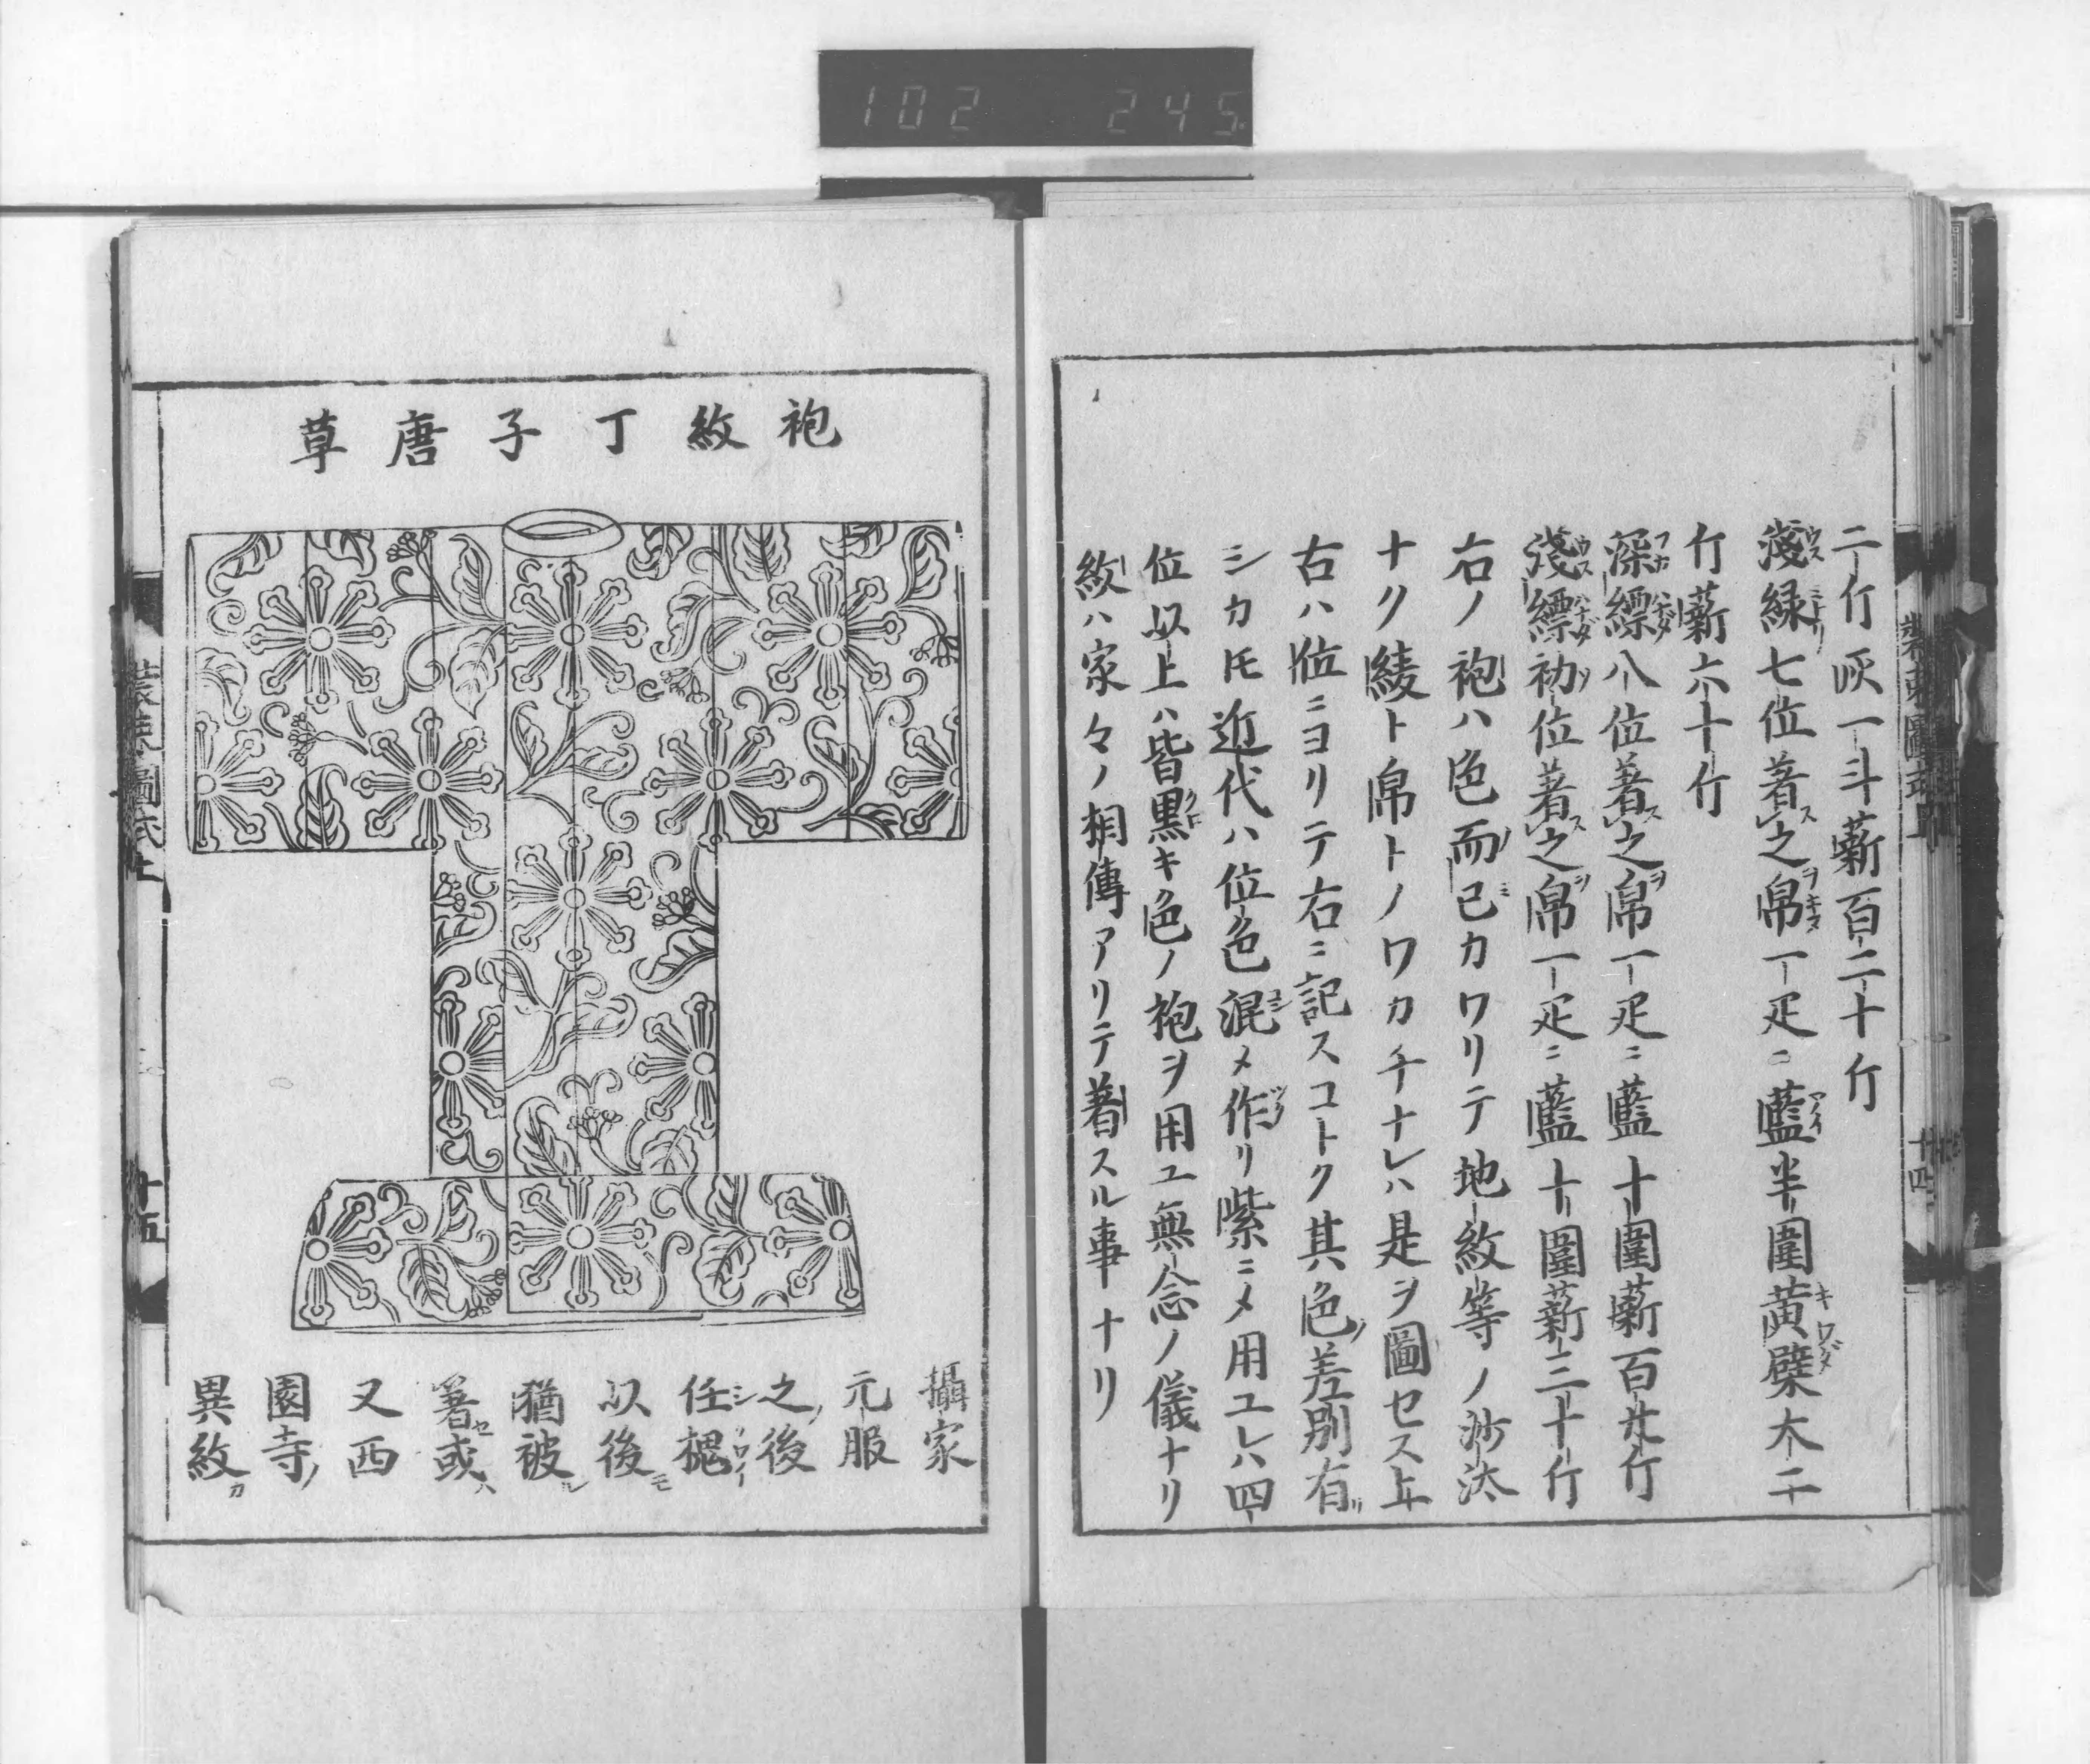 102 245
二斤灰一斗薪百二十斤
淺緑七位著之帛一疋ニ藍半圍黄檗大二
斤薪六十斤
深縹八位著之帛一疋ニ藍十圍薪百廿斤
淺縹初位著之帛一疋ニ藍十圍薪三十斤
右ノ袍ハ色而已カワリテ地紋等ノ沙汰
ナク綾ト帛トノワカチナレハ是ヲ圖セス上
古ハ位ニヨリテ右ニ記スコトク其色差別有
シカ𪜈近代ハ位色混〆作リ紫ニ〆用ユレハ四
位以上ハ皆黒キ色ノ袍ヲ用ユ無念ノ儀ナリ
紋ハ家々ノ相傳アリテ着スル事ナリ
十四
袍紋丁子唐草
攝家
元服
之後
任槐
以後
猶被
著或
又西
園寺
異紋
裝束圖式上
十五